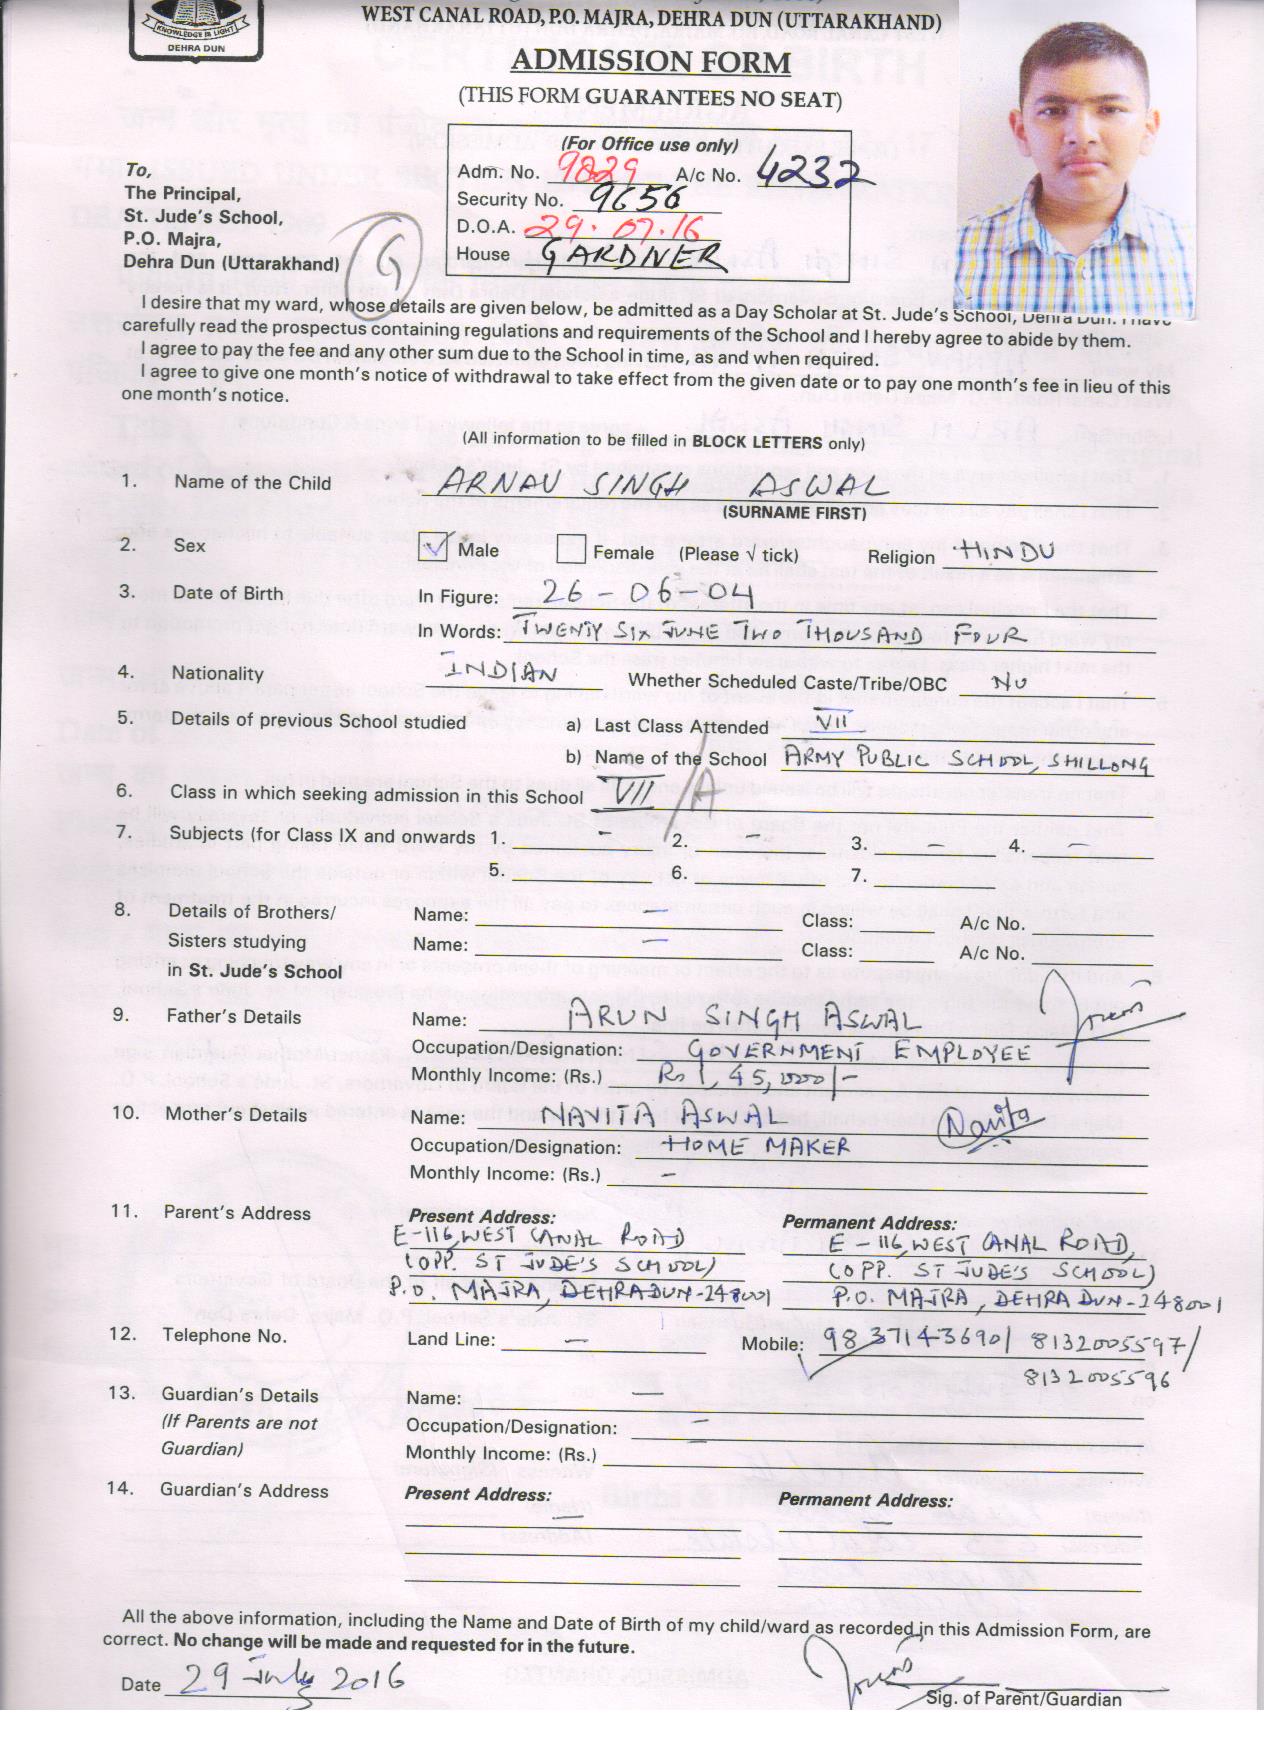 KNOWLEDGE IS LIGHT
DEHRA DUN
WEST CANAL ROAD, P.O. MAJRA, DEHRA DUN (UTTARAKHAND)
ADMISSION FORM
(THIS FORM GUARANTEES NO SEAT)
(For Office use only)
Adm. No. 9829 A/c No. 4232
Security No. 9656
D.O.A. 29.07.16
House GARDNER
To,
The Principal,
St. Jude's School,
P.O. Majra,
Dehra Dun (Uttarakhand)
I desire that my ward, whose details are given below, be admitted as a Day Scholar at St. Jude's School, Dehra Dun. I have
carefully read the prospectus containing regulations and requirements of the School and I hereby agree to abide by them.
I agree to pay the fee and any other sum due to the School in time, as and when required.
I agree to give one month's notice of withdrawal to take effect from the given date or to pay one month's fee in lieu of this
one month's notice.
(All information to be filled in BLOCK LETTERS only)
1. Name of the Child ARNAV SINGH ASWAL
(SURNAME FIRST)
2. Sex Male Female (Please √ tick) Religion HINDU
3. Date of Birth In Figure: 26-06-04
In Words: TWENTY SIX JUNE TWO THOUSAND FOUR
4. Nationality INDIAN Whether Scheduled Caste/Tribe/OBC NO
5. Details of previous School studied a) Last Class Attended VII
b) Name of the School ARMY PUBLIC SCHOOL, SHILLONG
6. Class in which seeking admission in this School VII/A
7. Subjects (for Class IX and onwards 1. - 2. - 3. - 4. -
5. 6. 7.
8. Details of Brothers/ Name: - Class: A/c No.
Sisters studying Name: - Class: A/c No.
in St. Jude's School
9. Father's Details Name: ARUN SINGH ASWAL
Occupation/Designation: GOVERNMENT EMPLOYEE
Monthly Income: (Rs.) Rs 1,45,000/-
10. Mother's Details Name: NAVITA ASWAL Navita
Occupation/Designation: HOME MAKER
Monthly Income: (Rs.) -
11. Parent's Address Present Address: Permanent Address:
E-116, WEST CANAL ROAD E-116, WEST CANAL ROAD,
(OPP. ST JUDE'S SCHOOL) (OPP. ST JUDE'S SCHOOL)
P.O. MAJRA, DEHRADUN-248001 P.O. MAJRA, DEHRA DUN-248001
12. Telephone No. Land Line: - Mobile: 9837143690/ 8132005597/
8132005596
13. Guardian's Details Name: -
(If Parents are not Occupation/Designation: -
Guardian) Monthly Income: (Rs.) -
14. Guardian's Address Present Address: - Permanent Address: -
All the above information, including the Name and Date of Birth of my child/ward as recorded in this Admission Form, are
correct. No change will be made and requested for in the future.
Date 29 July 2016
Sig. of Parent/Guardian